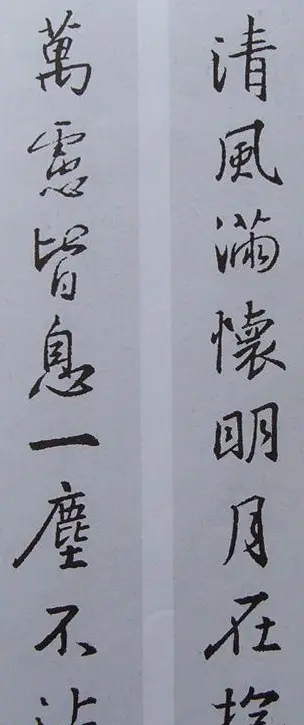 清風滿懷明月在
萬慮皆息一塵不